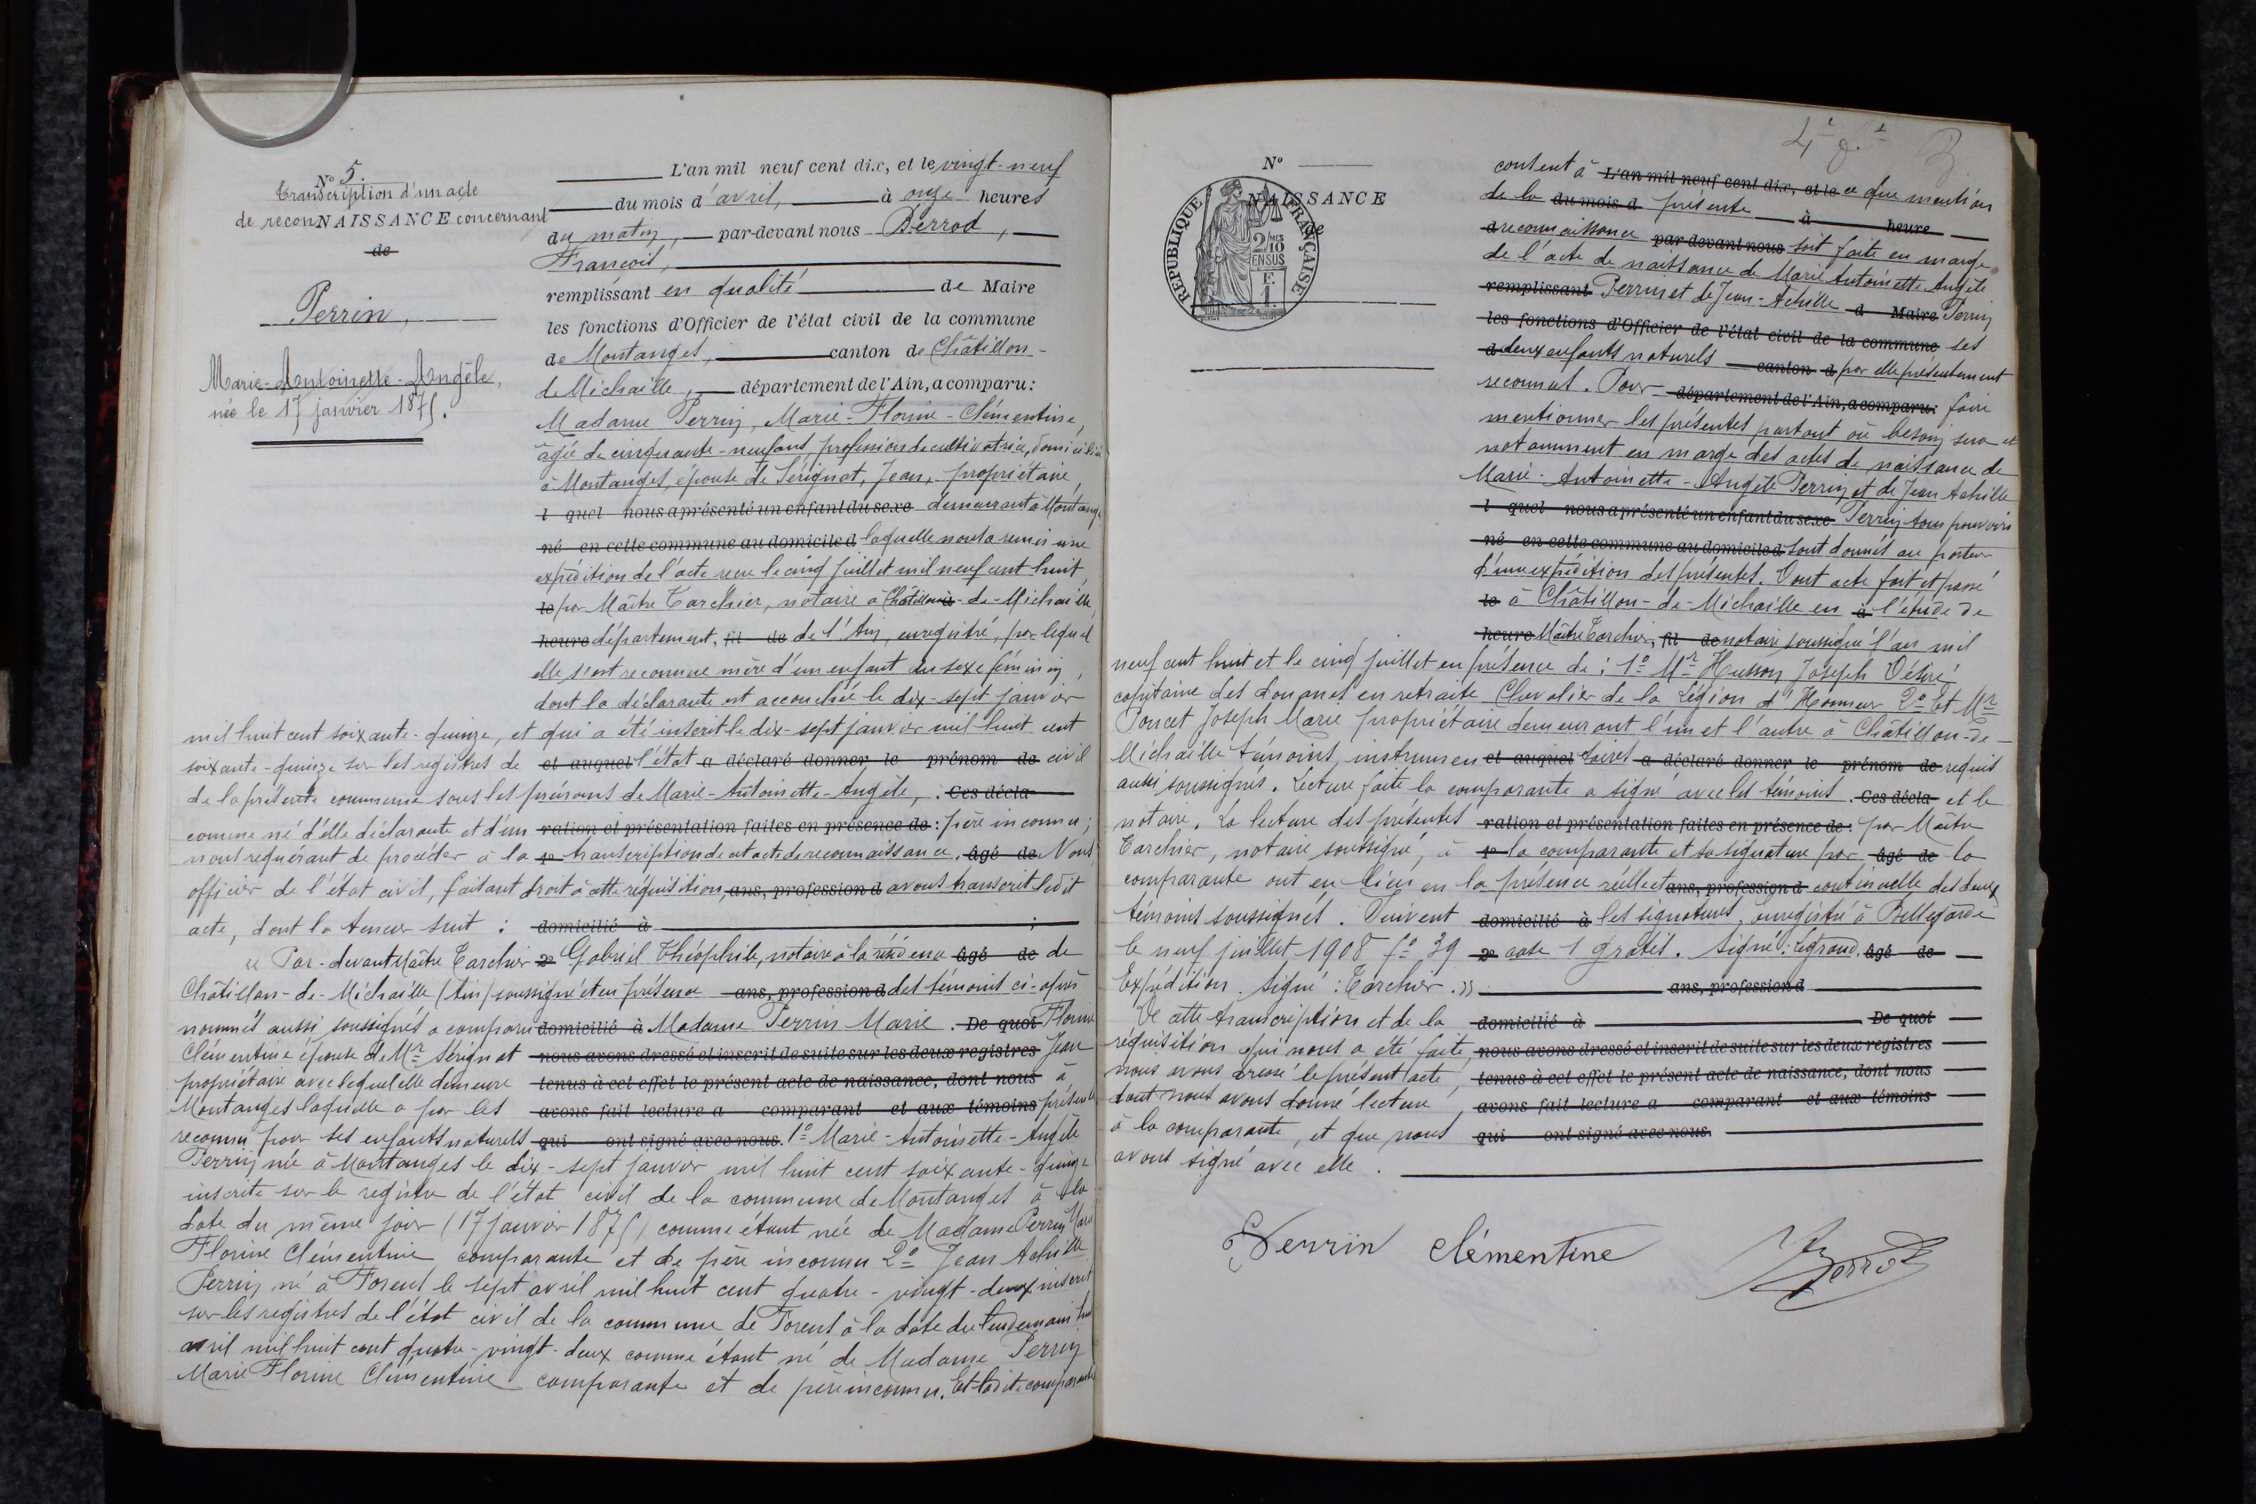 N° 5.
Transcription d'un acte
de reconNAISSANCE concernant
de
Perrin,
Marie-Antoinette-Angèle,
née le 17 janvier 1875.
L'an mil neuf cent dix, et le vingt-neuf
du mois d'avril, à onze heures
du matin, par-devant nous Berrod,
François,
remplissant en qualité de Maire
les fonctions d'Officier de l'état civil de la commune
de Montanges, canton de Châtillon-
de Michaille, département de l'Ain, a comparu:
Madame Perrin, Marie-Florine-Clémentine,
âgée de cinquante-neuf ans, profession de cultivatrice, domiciliée
à Montanges, épouse de Sérignat, Jean, propriétaire,
l quel nous a présenté un enfant du sexe demeurant à Montanges
né en cette commune au domicile d laquelle nous a remis une
expédition de l'acte reçu le cinq juillet mil neuf cent huit
le par Maître Tarchier, notaire à Châtillon à -de-Michaille,
heure département, fil de de l'Ain, enregistré, par lequel
elle s'est reconnue mère d'un enfant du sexe féminin,
dont la déclarante est accouchée le dix-sept janvier
mil huit cent soixante-quinze, et qui a été inscrit le dix-sept janvier mil huit cent
soixante-quinze sur les registres de et auquel l'état a déclaré donner le prénom de civil
de la présente commune sous les prénoms de Marie-Antoinette-Angèle, . Ces décla
comme né d'elle déclarante et d'un ration et présentation faites en présence de : père inconnu;
nous requérant de procéder à la 1° transcription de cet acte de reconnaissance. âgé de Nous
officier de l'état civil, faisant droit à cette réquisition, ans, profession d avons transcrit ledit
acte, dont la teneur suit : domicilié à ;
« Par-devant Maître Tarchier 2° Gabriel Théophile, notaire à la résidence âgé de de
Châtillon-de-Michaille (Ain) soussigné et en présence ans, profession d des témoins ci-après
nommés aussi soussignés a comparu domicilié à Madame Perrin Marie . De quoi Florine
Clémentine épouse de Mr Sérignat nous avons dressé et inscrit de suite sur les deux registres Jean
propriétaire avec lequel elle demeure tenus à cet effet le présent acte de naissance, dont nous à
Montanges laquelle a par les avons fait lecture a comparant et aux témoins présentes
reconnu pour ses enfants naturels qui ont signé avec nous. 1° Marie-Antoinette-Angèle
Perrin née à Montanges le dix-sept janvier mil huit cent soixante-quinze
inscrite sur le registre de l'état civil de la commune de Montanges à la
date du même jour (17 janvier 1875) comme étant née de Madame Perrin Marie
Florine Clémentine comparante et de père inconnu 2° Jean Achille
Perrin né à Forens le sept avril mil huit cent quatre-vingt-deux inscrit
sur les registres de l'état civil de la commune de Forens à la date du lendemain huit
avril mil huit cent quatre-vingt-deux comme étant né de Madame Perrin
Marie Florine Clémentine comparante et de père inconnu. Et ladite comparante
N°
NAISSANCE
de
RÉPUBLIQUE FRANÇAISE
2/10 EN SUS
F. 1.
consent à L'an mil neuf cent dix, et le ce que mention
de la du mois d présente à heure
d reconnaissance par-devant nous soit faite en marge
de l'acte de naissance de Marie Antoinette Angèle
remplissant Perrin et de Jean-Achille d Maire Perrin
les fonctions d'Officier de l'état civil de la commune ses
d deux enfants naturels canton d par elle présentement
reconnus. Pour département de l'Ain, a comparu: faire
mentionner les présentes partout où besoin sera et
notamment en marge des actes de naissance de
Marie-Antoinette-Angèle Perrin et de Jean Achille
l quel nous a présenté un enfant du sexe Perrin tous pouvoirs
né en cette commune au domicile d sont donnés au porteur
d'une expédition des présentes. Dont acte fait et passé
le à Châtillon-de-Michaille en à l'étude de
heure Maître Tarchier, fil de notaire soussigné l'an mil
neuf cent huit et le cinq juillet en présence de : 1° Mr Husson Joseph Désiré
capitaine des douanes en retraite Chevalier de la Légion d'Honneur 2° Et Mr
Poncet Joseph Marie propriétaire demeurant l'un et l'autre à Châtillon-de-
Michaille témoins, instrumen et auquel taires a déclaré donner le prénom de requis
aussi soussignés. Lecture faite la comparante a signé avec les témoins . Ces décla et le
notaire. La lecture des présentes ration et présentation faites en présence de : par Maître
Tarchier, notaire soussigné, à 1° la comparante et sa signature par âgé de la
comparante ont eu lieu en la présence réelle et ans, profession d continuelle des deux
témoins soussignés. Suivent domicilié à les signatures, enregistré à Bellegarde
le neuf juillet 1908 f° 39 2° case 1 gratis. Signé: Legrand. âgé de
Expédition. Signé: Tarchier. » ans, profession d
De cette transcription et de la domicilié à . De quoi
réquisition qui nous a été faite, nous avons dressé et inscrit de suite sur les deux registres
nous avons dressé le présent acte, tenus à cet effet le présent acte de naissance, dont nous
dont nous avons donné lecture, avons fait lecture a comparant et aux témoins
à la comparante, et que nous qui ont signé avec nous.
avons signé avec elle.
Perrin Clémentine Berrod